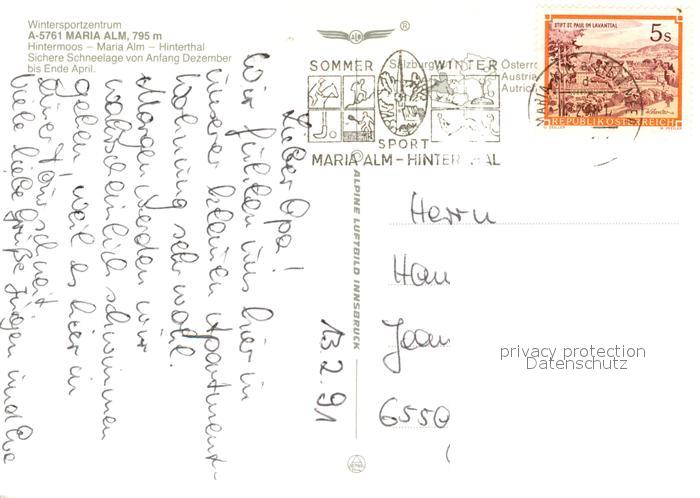 Wintersportzentrum
A-5761 MARIA ALM, 795 m
Hintermoos – Maria Alm – Hinterthal
Sichere Schneelage von Anfang Dezember
bis Ende April.
®
Salzburg
Österre
Austria
Autrich
SOMMER WINTER
SPORT
MARIA ALM - HINTER HAL
STIFT ST. PAUL IM LAVANTTAL
5s
REPUBLIK ÖSTERREICH
ALPINE LUFTBILD INNSBRUCK
13.2.91
Lieber Opa!
Wir fühlen uns hier in
unserer kleinen Apartment-
Wohnung sehr wohl.
Morgen werden wir
wahrscheinlich schwimmen
gehen, weil es hier in
einer Tour schneit.
Viele liebe Grüße Jürgen und Eva
Herrn
Han
Jean
6550
privacy protection
Datenschutz